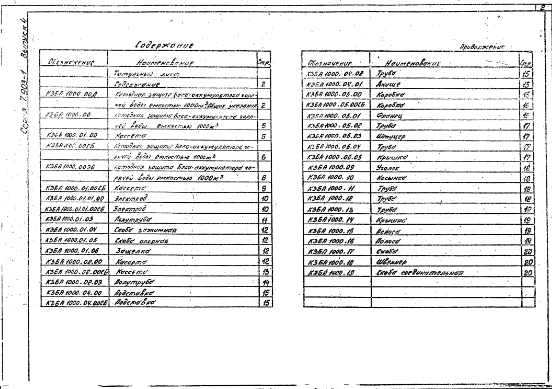 2
Серия 7.903-1 Выпуск 4
Содержание
Обозначение Наименование Стр.
Титульный лист
Содержание 2
КЗБА 1000.00Д Катодная защита бака-аккумулятора горя-
чей воды емкостью 1000м³ Общие указания 2
КЗБА 1000.00 Катодная защита бака-аккумулятора горя-
чей воды емкостью 1000м³ 5
КЗБА 1000.01.00 Кассета 5
Катодная защита бака-аккумулятора го-
рячей воды емкостью 1000м³ 6
Катодная защита бака-аккумулятора го-
рячей воды емкостью 1000м³ 8
КЗБА 1000.01.00СБ Кассета 9
КЗБА 1000.01.01.00 Электрод 10
КЗБА 1000.01.01.00СБ Электрод 10
КЗБА 1000.01.03 Полутруба 11
КЗБА 1000.01.04 Скоба зажимная 12
КЗБА 1000.01.05 Скоба опорная 12
КЗБА 1000.01.06 Защелка 12
КЗБА 1000.02.00 Кассета 12
КЗБА 1000.02.00СБ Кассета 13
КЗБА 1000.02.03 Полутруба 14
КЗБА 1000.04.00 Подставка 15
КЗБА 1000.04.00СБ Подставка 15
Продолжение
Обозначение Наименование Стр.
КЗБА 1000.04.02 Труба 15
КЗБА 1000.04.01 Днище 15
КЗБА 1000.05.00 Коробка
КЗБА 1000.05.00СБ Коробка 16
КЗБА 1000.05.01 Фланец 16
КЗБА 1000.05.02 Труба 17
КЗБА 1000.05.03 Штуцер 17
КЗБА 1000.05.04 Труба 17
КЗБА 1000.05.05 Крышка 17
КЗБА 1000.09 Уголок 18
КЗБА 1000.10 Косынка 18
КЗБА 1000.11 Труба 18
КЗБА 1000.12 Труба 18
КЗБА 1000.13 Труба 19
КЗБА 1000.14 Крышка 19
КЗБА 1000.15 Полоса 19
КЗБА 1000.16 Полоса 19
КЗБА 1000.17 Скоба 20
КЗБА 1000.18 Швеллер 20
КЗБА 1000.19 Скоба соединительная 20